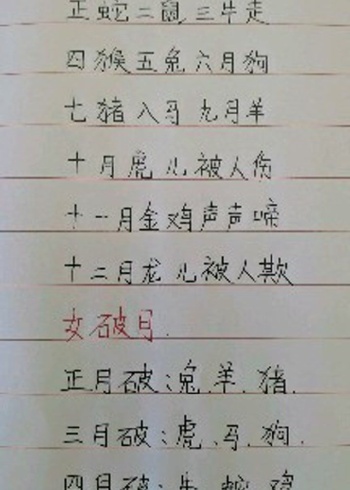 正蛇二鼠三牛走
四猴五兔六月狗
七猪八马九月羊
十月虎儿被人伤
十一月金鸡声声啼
十二月龙儿被人欺
女破月.
正月破:兔.羊.猪.
三月破:虎、马.狗.
四月破:牛.蛇.鸡